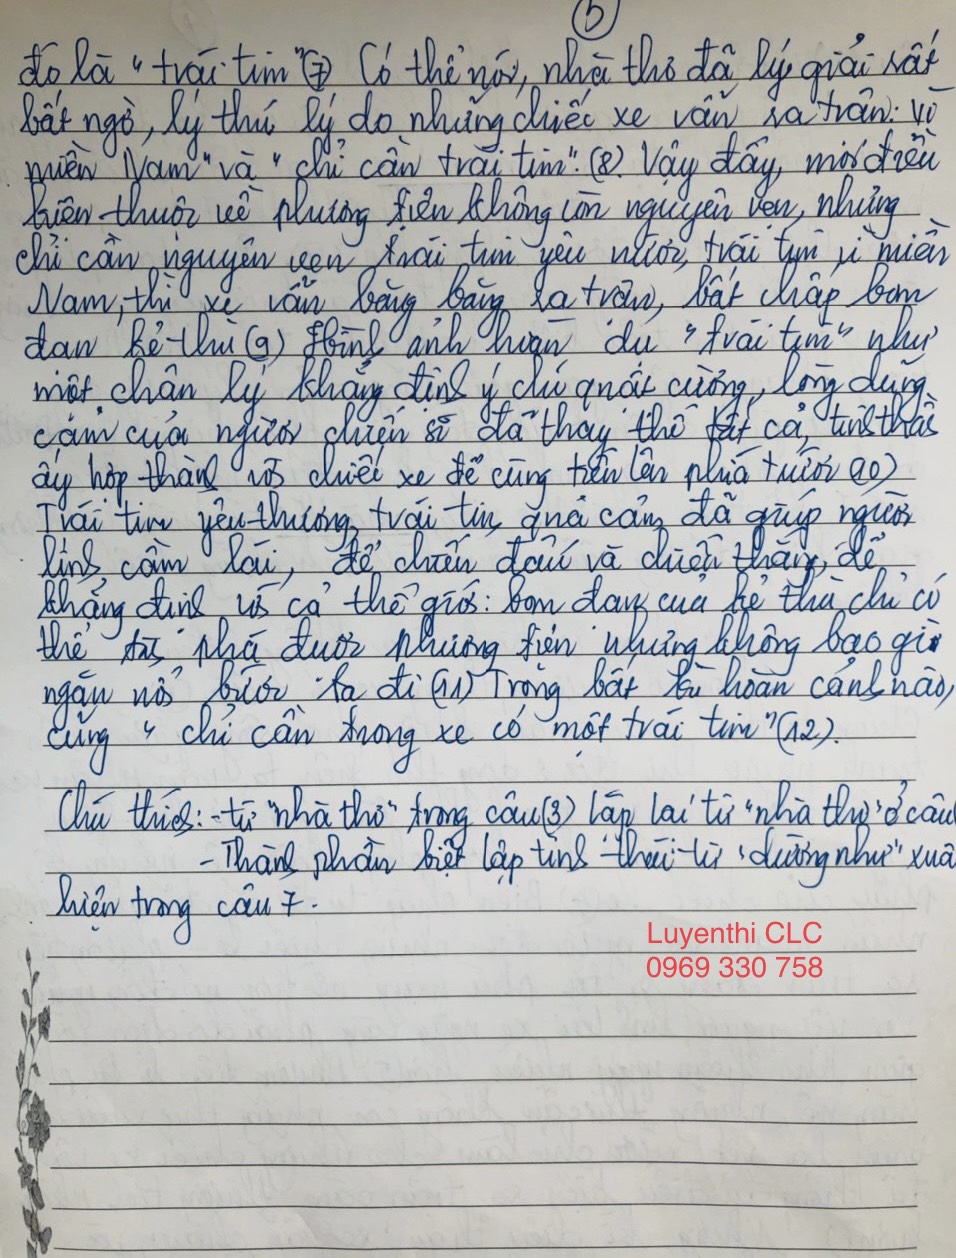 b
đó là "trái tim"(7) Có thể nói, nhà thơ đã lý giải rất
bất ngờ, lý thú lý do những chiếc xe vẫn ra trận: vì
miền Nam" và "chỉ cần trái tim".(8). Vậy đấy, mọi điều
kiện thuộc về phương tiện không còn nguyên vẹn, nhưng
chỉ cần nguyên vẹn trái tim yêu nước, trái tim vì miền
Nam, thì xe vẫn băng băng ra trận, bất chấp bom
đạn kẻ thù(9) Hình ảnh hoán dụ "trái tim" như
một chân lý khẳng định ý chí quật cường, lòng dũng
cảm của người chiến sĩ đã thay thế tất cả, tinh thần
ấy hợp thành với chiếc xe để cùng tiến lên phía trước(10)
Trái tim yêu thương, trái tim quả cảm đã giúp người
lính cầm lái, để chiến đấu và chiến thắng, để
khẳng định với cả thế giới: bom đạn của kẻ thù chỉ có
thể phá được phương tiện nhưng không bao giờ
ngăn nổi bước ta đi(11) Trong bất kì hoàn cảnh nào,
cũng "chỉ cần trong xe có một trái tim"(12).
Chú thích: - từ "nhà thơ" trong câu(3) lặp lại từ "nhà thơ" ở câu
- Thành phần biệt lập tình thái từ "dường như" xuất
hiện trong câu 7.
Luyenthi CLC
0969 330 758